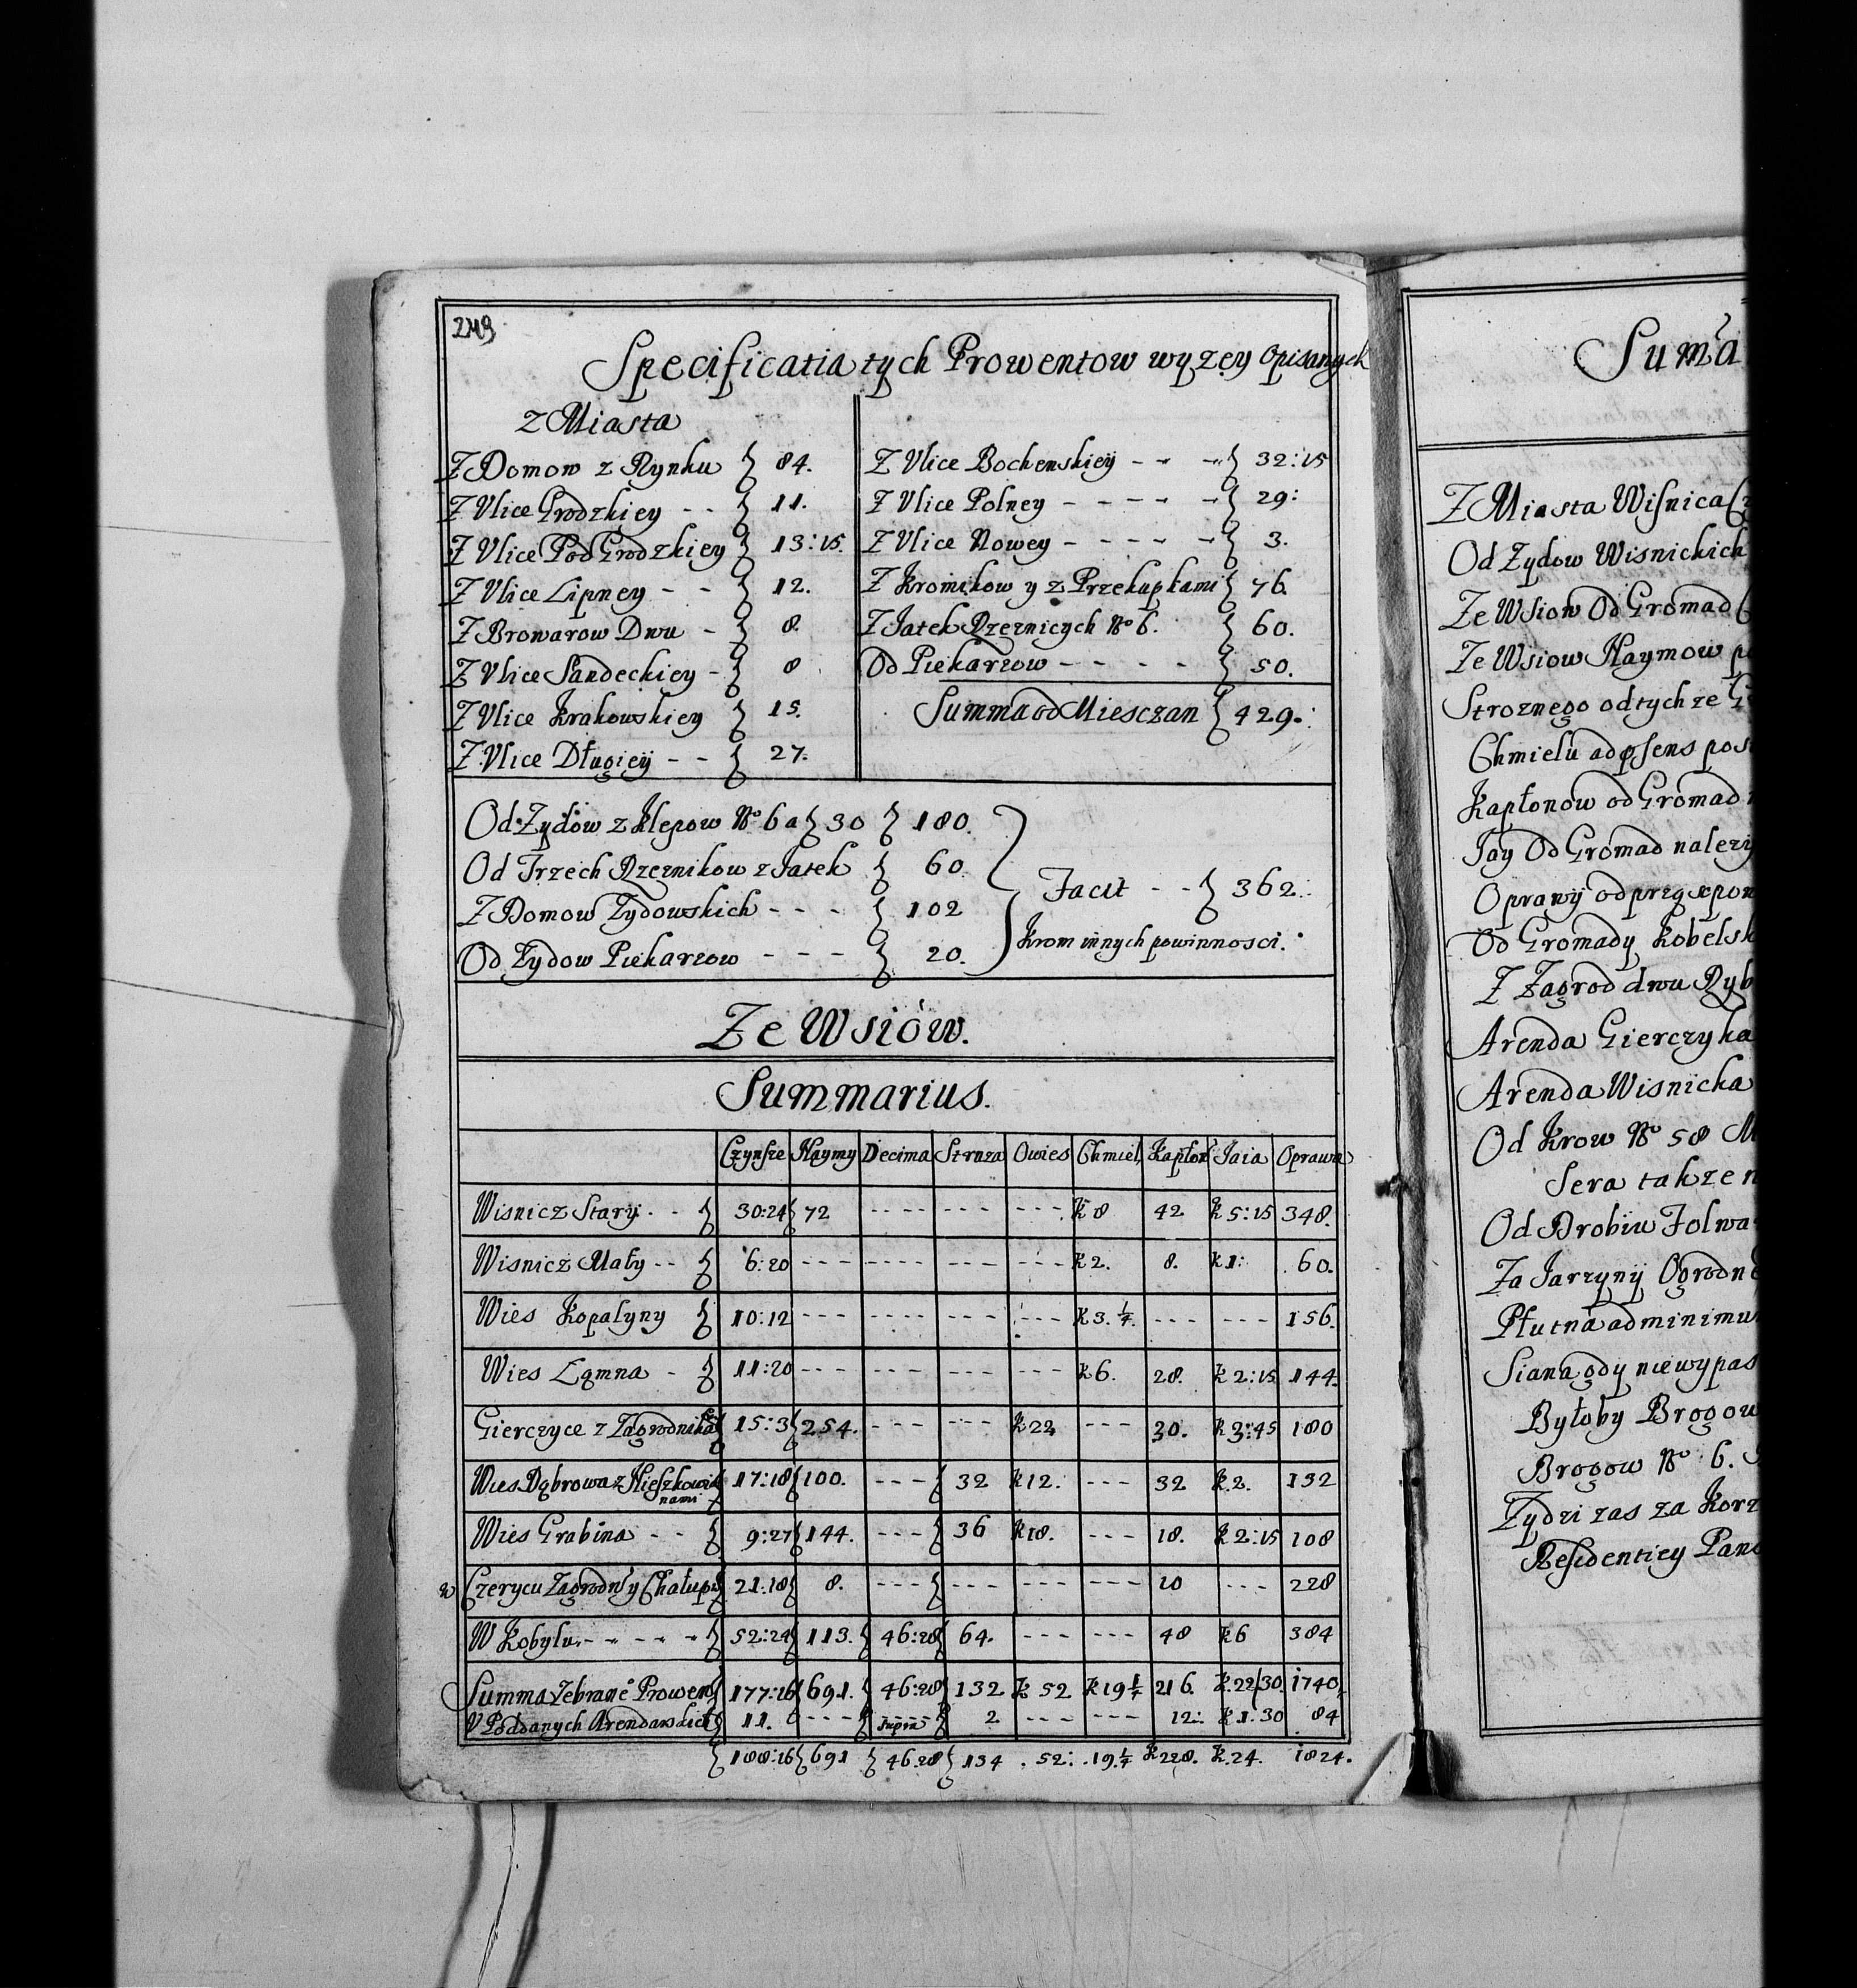 249
Specificatia tych Prowentow wyzey Opisanych
z Miasta
Z Domow z Rynku 84.
Z Vlice Grodzkiey - - 11.
Z Vlice Pod Grodzkiey 13:15.
Z Vlice Lipney - - 12.
Z Browarow Dwu - 8.
Z Vlice Sandeckiey - 8
Z Vlice Krakowskiey 15.
Z Vlice Długiey - - 27.
Z Vlice Bochenskiey - - - 32:15
Z Vlice Polney - - - - - 29:
Z Vlice Nowey - - - - - 3.
Z Kromikow y z Przekupkami 76.
Z Jatek Rzeznicych No 6. 60.
Od Piekarzow - - - - 50.
Summa od Miesczan 429.
Od Zydow z Klepow No 6 a 30 180.
Od Trzech Rzeznikow z Jatek 60.
Z Domow Zydowskich - - - 102
Od Zydow Piekarzow - - - 20.
Facit - - 362.
Krom innych powinnosci.
Ze Wsiów.
Summarius.
Czynsze Naymy Decima Stroza Owies Chmiel Kapłon Jaia Oprawa
Wisnicz Stary - - 30:24 72 --- --- --- k 8 42 k 5:15 348.
Wisnicz Mały - - 6:20 --- --- --- --- k 2. 8. k 1: 60.
Wies Kopalyny 10:12 --- --- --- --- k 3. 1/4. --- --- 156.
Wies Łąmna - 11:20 --- --- --- --- k 6. 28. k 2:15 144.
Gierczyce z Zagrodnika 15:3 254. --- --- k 22 --- 30. k 3:45 180
Wies Dąbrowa z Nieszkowia
nami 17:18 100. --- 32 k 12. --- 32 k 2. 132
Wies Grabina - - 9:27 144. --- 36 k 18. --- 18. k 2:15 108
w Czerycu Zagrodn y Chałupn 21:18 8. --- --- --- --- 10 --- 228
W Kobylu - - - - - 52:24 113. 46:28 64. --- --- 48 k 6 384
Summa Zebrane Prowen 177:26 691. 46:28 132 k 52 k 19 1/4 216. k 22/30 1740.
V Poddanych Arendarskich 11. --- --- 2 --- --- 12: k 1:30 84
188:26 691 46:28 134 . 52: .19.1/4 k 228. k 24. 1824.
Suma
Z Miasta Wisnica
Od Zydow Wisnickich
Ze Wsiow Od Gromad
Ze Wsiow Naymow
Stroznego od tychze
Chmielu
Kapłonow od Gromad
Jay Od Gromad
Oprawy od
Od Gromady
Z Zagrod dwu
Arenda Gierczyka
Arenda Wisnicka
Od Krow No 58
Sera takze
Od Drobiu
Za Jarzyny
Płutna ad
Siana gdy
Byłoby
Brogow No 6.
Zydzi zas za
Residentiey